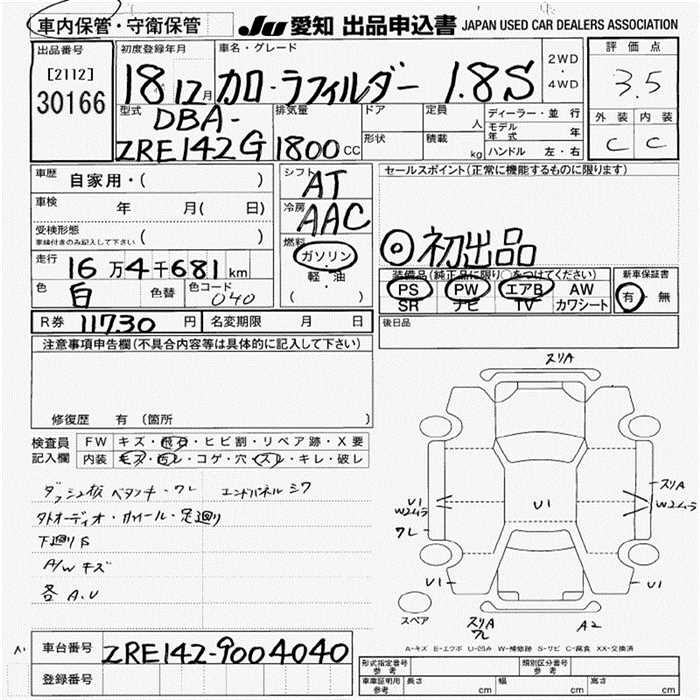 車内保管・守衛保管
JU 愛知 出品申込書 JAPAN USED CAR DEALERS ASSOCIATION
出品番号
[2112]
30166
初度登録年月
18 12月
車名・グレード
カローラフィルダー 1.8S
2WD
・
4WD
評価点
3.5
外装 内装
C C
型式
DBA-
ZRE142G
排気量
1800 CC
ドア
形状
定員 人
積載 kg
ディーラー・並行
モデル年式 年
ハンドル 左・右
車歴 自家用・( )
車検 年 月( 日)
受検形態
車検付きのみ記入して下さい ( )
走行 16万4千681km
色 白 色替 色コード 040
シフト AT
冷房 AAC
燃料
ガソリン
軽・油
( )
セールスポイント(正常に機能するものに限ります)
◎初出品
装備品(純正品に限り○をつけてください)
PS PW エアB AW
SR ナビ TV カワシート
新車保証書
有・無
R券 11730 円 名変期限 月 日
後日品
注意事項申告欄(不具合内容等は具体的に記入して下さい)
修復歴 有 (箇所 )
検査員
記入欄
FW キズ・飛石・ヒビ割・リペア跡・X要
内装 キズ・汚レ・コゲ・穴・スレ・キレ・破レ
ダッシュ板ベタツキ・ワレ エンドパネルシワ
タトオーディオ・ホイール・足廻り
下廻りS
A/Wキズ
各A.U
スリA
U1
W2ムラ
ワレ
U1
スリA
W2ムラ
U1
U1
スペア
スリA
ワレ
A2
A-キズ E-エクボ U-凹み W-補修跡 S-サビ C-腐食 XX-交換済
車台番号 ZRE142-9004040
登録番号
形式指定番号
参考
類別区分番号
参考
車庫証明用
参考
長さ cm 幅 cm 高さ cm